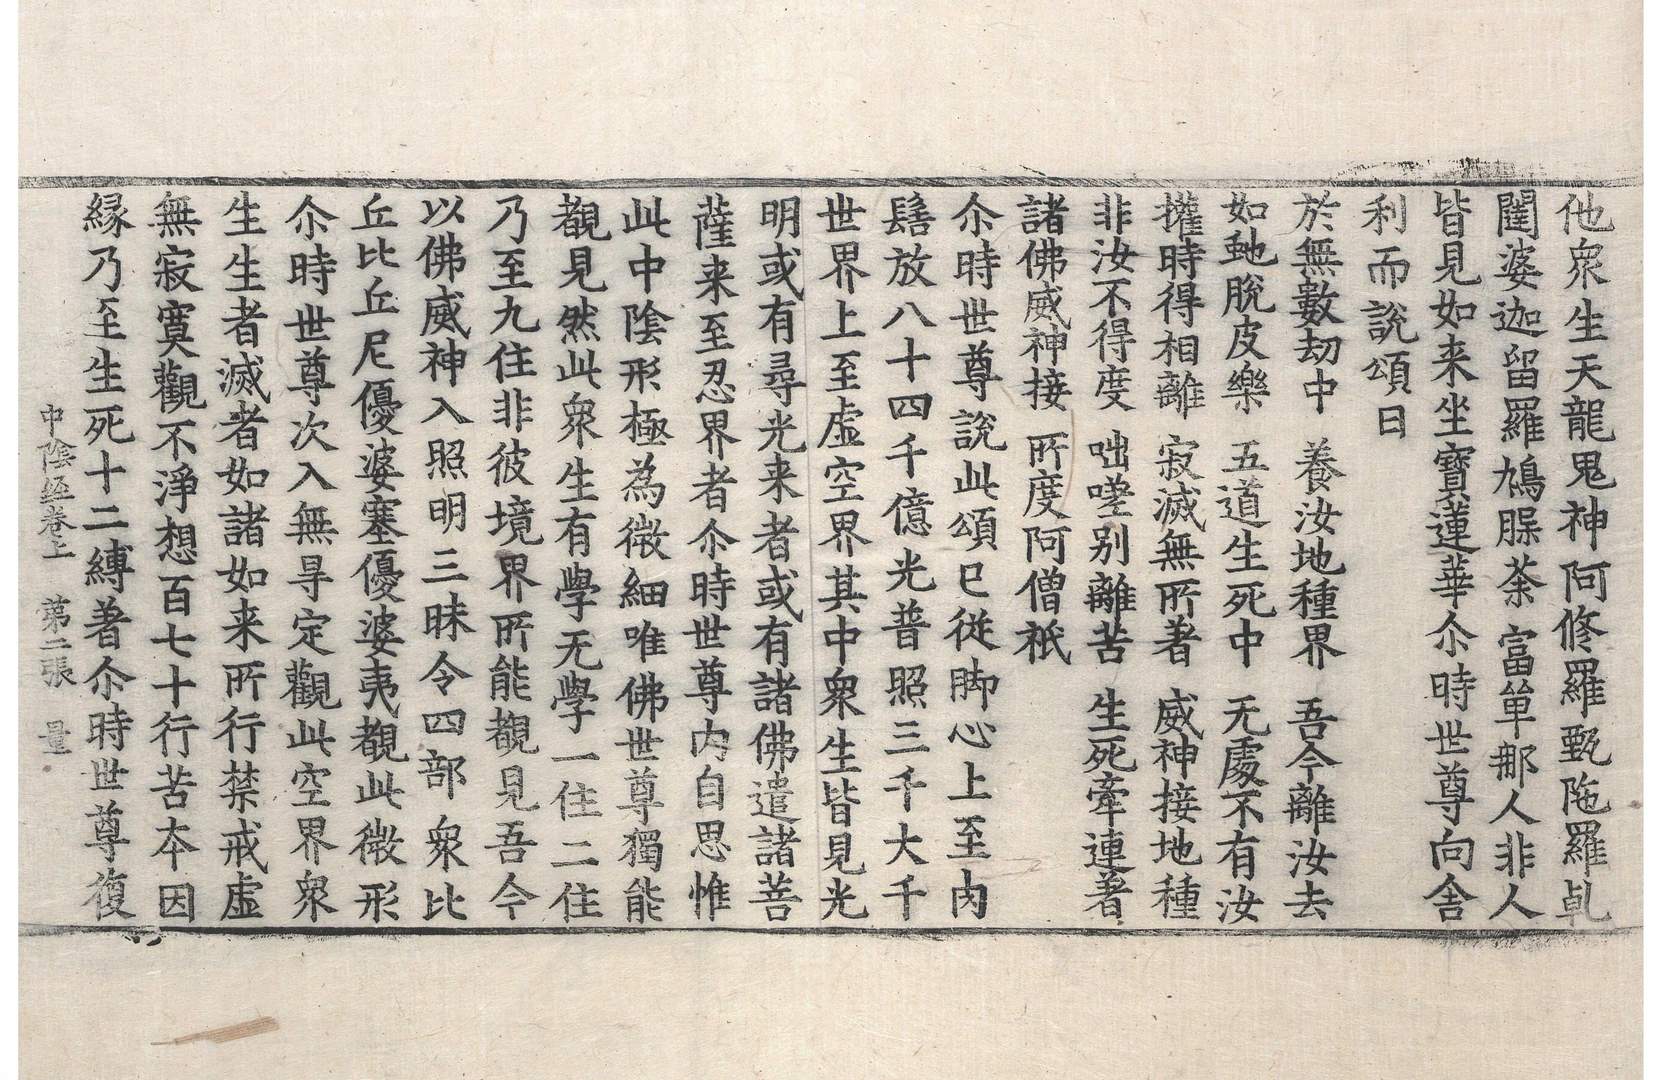 他衆生天龍鬼神阿修羅甄陁羅乹
闥婆迦留羅鳩睩荼富單那人非人
皆見如来坐寳蓮華尒時世尊向舍
利而說頌曰
於無數劫中 養汝地種界 吾今離汝去
如虵脫皮樂 五道生死中 无處不有汝
攉時得相離 寂滅無所著 威神接地種
非汝不得度 咄嗟别離苦 生死牽連著
諸佛威神接 所度阿僧祇
尒時世尊說此頌已從脚心上至肉
髻放八十四千億光普照三千大千
世界上至虛空界其中衆生皆見光
明或有尋光来者或有諸佛遣諸菩
薩来至忍界者尒時世尊内自思惟
此中陰形極為微細唯佛世尊獨能
覩見然此衆生有學无學一住二住
乃至九住非彼境界所能覩見吾今
以佛威神入照明三昧令四部衆比
丘比丘尼優婆塞優婆夷覩此微形
尒時世尊次入無㝵定觀此空界衆
生生者滅者如諸如来所行禁戒虛
無寂寞觀不淨想百七十行苦本因
緣乃至生死十二縛著尒時世尊復
中陰經卷上 第二張 量